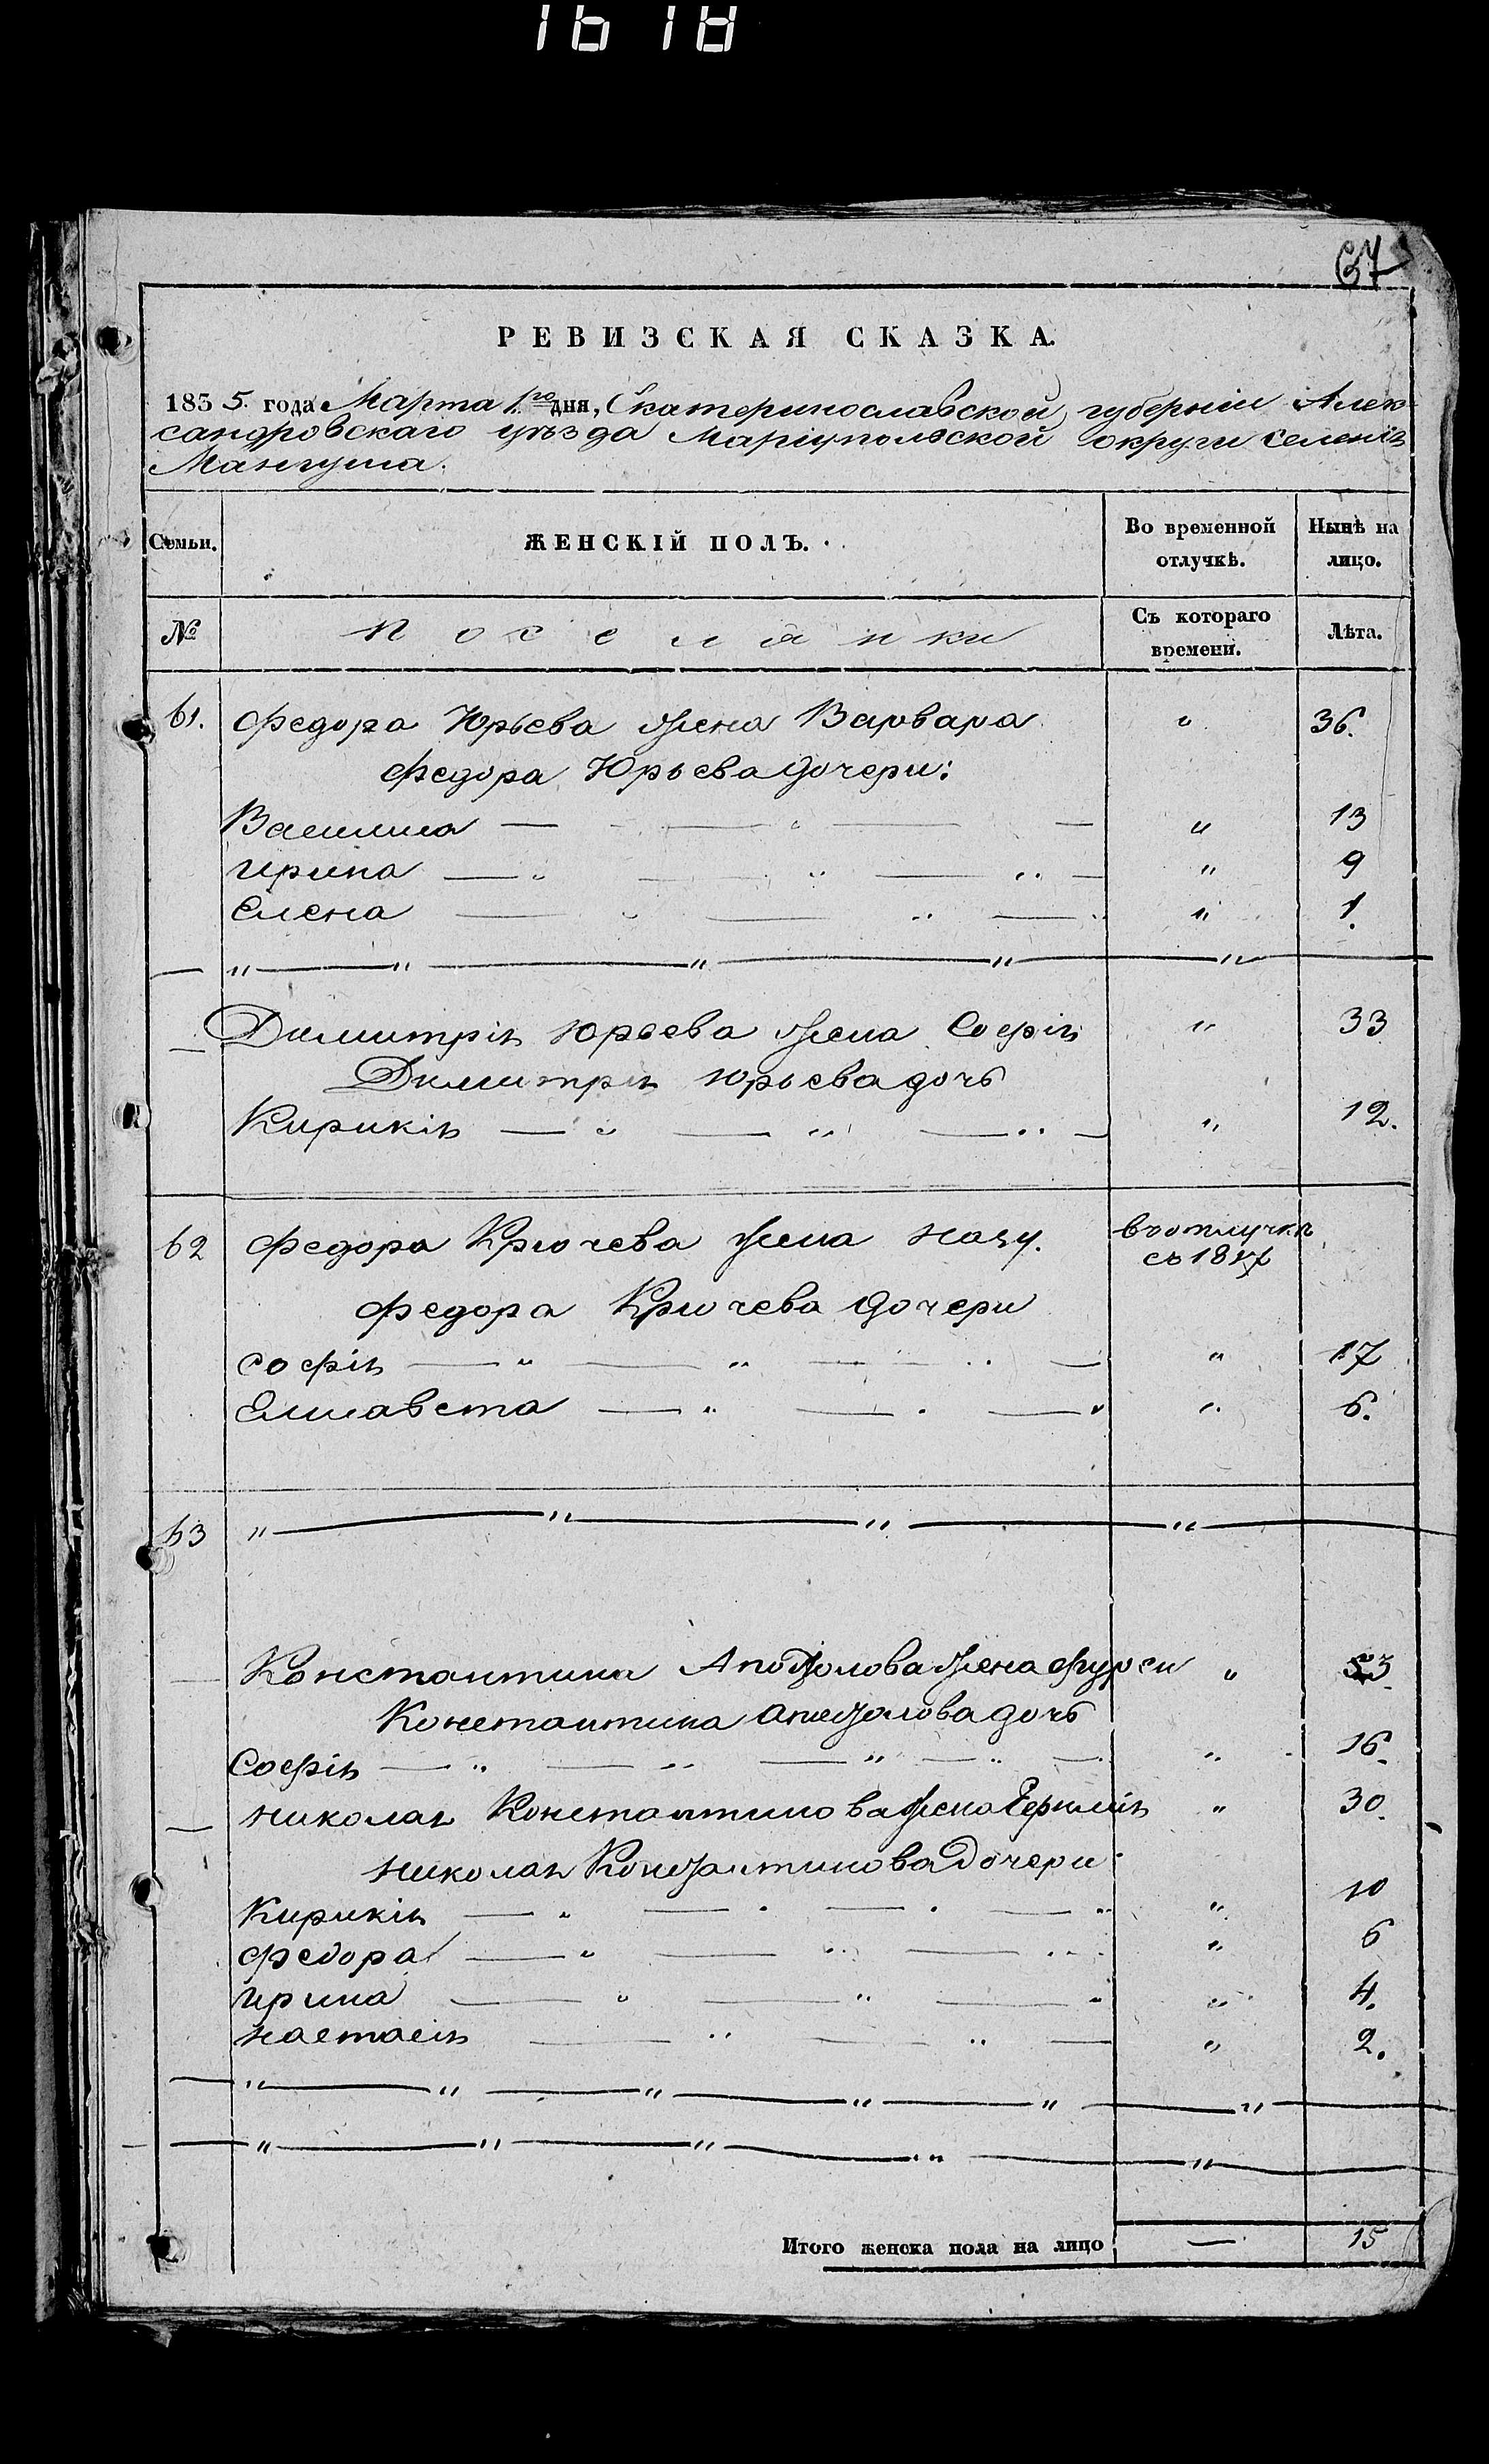 1618
67
РЕВИЗСКАЯ СКАЗКА.
1855. года Марта 1го дня, Екатеринославской губерніи Алек
сандровскаго уѣзда Маріупольской округи селенія
Мангуша.
Семьи. ЖЕНСКІЙ ПОЛЪ. Во временной отлучкѣ. Нынѣ на лицо.
№ Поселянки Съ котораго времени. Лѣта.
61. Федора Юрьева жена Варвара „ 36.
Федора Юрьева дочери:
Василиса „ 13
Ирина „ 9
Елена „ 1.
Димитрія Юрьева жена Софія „ 33
Димитрія Юрьева дочь
Кирикія „ 12.
62 Федора Крючева жена Назу. въ отлучкѣ
съ 1847
Федора Крючева дочери
Софія „ 17
Елисавета „ 6.
63 „
Константина Апостолова жена Фурси „ 53
Константина Апостолова дочь
Софія „ 16.
Николая Константинова жена „ 30.
Николая Константинова дочери
Кирикія „ 10
Федора „ 6
Ирина „ 4.
Настасія „ 2.
Итого женска пола на лицо — 15